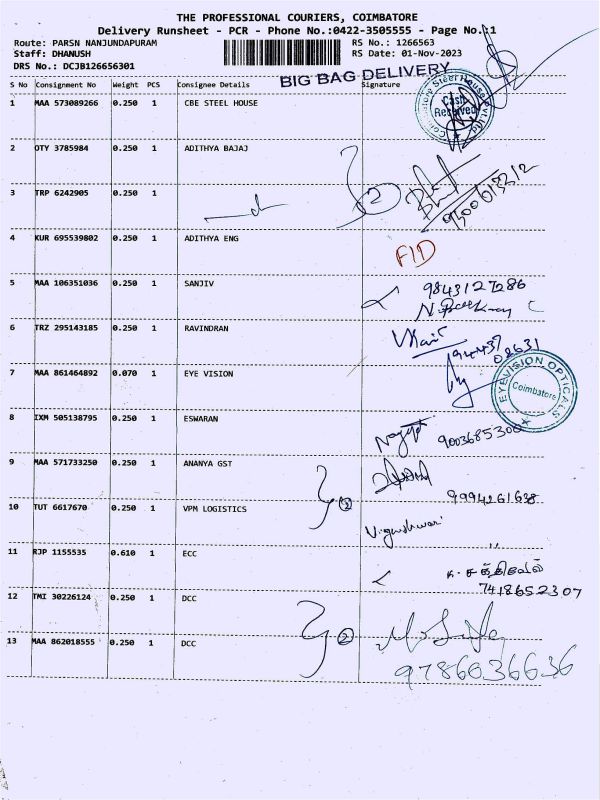 THE PROFESSIONAL COURIERS, COIMBATORE
Delivery Runsheet - PCR - Phone No.:0422-3505555 - Page No.:1
Route: PARSN NANJUNDAPURAM RS No.: 1266563
Staff: DHANUSH RS Date: 01-Nov-2023
DRS No.: DCJB126656301
BIG BAG DELIVERY
S No Consignment No Weight PCS Consignee Details Signature
1 MAA 573089266 0.250 1 CBE STEEL HOUSE
Coimbatore Steel House Pvt Ltd
Cash Received
2 OTY 3785984 0.250 1 ADITHYA BAJAJ
2
3 TRP 6242905 0.250 1
4 KUR 695539802 0.250 1 ADITHYA ENG
5 MAA 106351036 0.250 1 SANJIV 9843127286
6 TRZ 295143185 0.250 1 RAVINDRAN
7 MAA 861464892 0.070 1 EYE VISION
EYEVISION OPTICALS
Coimbatore
8 IXM 505138795 0.250 1 ESWARAN
9003685300
9 MAA 571733250 0.250 1 ANANYA GST
9994261638
2
10 TUT 6617670 0.250 1 VPM LOGISTICS
Vigneshwari
11 RJP 1155535 0.610 1 ECC
க. சக்திவேல்
7418652307
12 TMI 30226124 0.250 1 DCC
2
13 MAA 862018555 0.250 1 DCC
9786036636